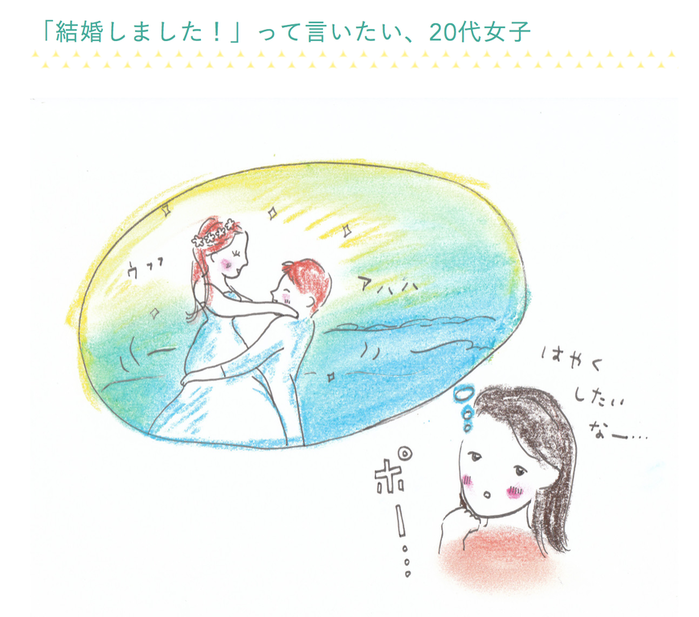 「結婚しました！」って言いたい、20代女子
ウフフ
アハハハ
はやく
したい
なー…
ポー…